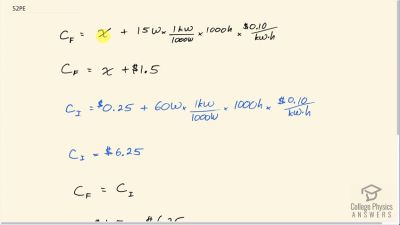 52PE
C_F = x + 15W × 1kW/1000W × 1000h × $0.10/kW·h
C_F = x + $1.5
C_I = $0.25 + 60W × 1kW/1000W × 1000h × $0.10/kW·h
C_I = $6.25
C_F = C_I
College Physics
ANSWERS